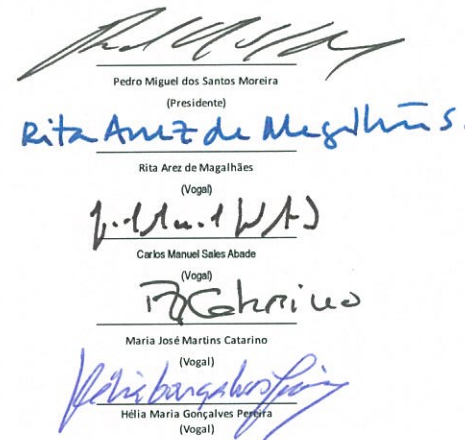 Pedro Miguel dos Santos Moreira
(Presidente)
Rita Arez de Magalhães.
Rita Arez de Magalhães
(Vogal)
Carlos Manuel Sales Abade
(Vogal)
Catarino
Maria José Martins Catarino
(Vogal)
Hélia Maria Gonçalves Pereira
(Vogal)